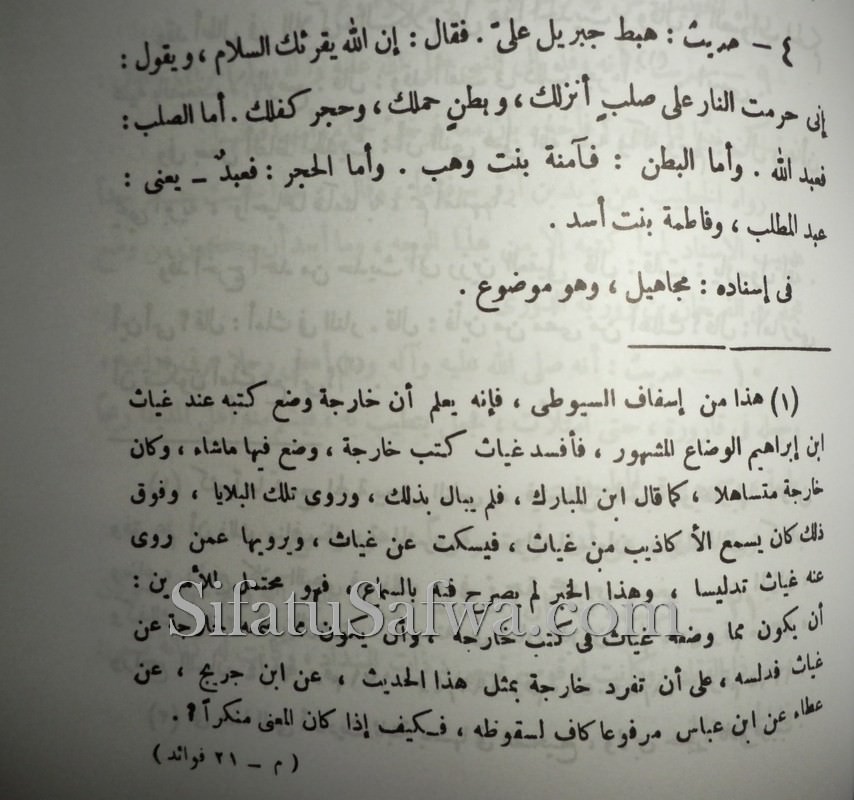 ٤ – حديث : هبط جبريل علىّ . فقال : إن الله يقرئك السلام ، ويقول :
إنى حرمت النار على صلبٍ أنزلك ، وبطنٍ حملك ، وحجر كفلك . أما الصلب :
فعبد الله . وأما البطن : فآمنة بنت وهب . وأما الحجر : فعبدٌ – يعنى :
عبد المطلب ، وفاطمة بنت أسد .
فى إسناده : مجاهيل ، وهو موضوع .
(١) هذا من إسفاف السيوطى ، فإنه يعلم أن خارجة وضع كتبه عند غياث
ابن إبراهيم الوضاع المشهور ، فأفسد غياث كتب خارجة ، وضع فيها ماشاء ، وكان
خارجة متساهلا ، كما قال ابن المبارك ، فلم يبال بذلك ، وروى تلك البلايا ، وفوق
ذلك كان يسمع الأكاذيب من غياث ، فيسكت عن غياث ، ويرويها عمن روى
عنه غياث تدليسا ، وهذا الخبر لم يصرح فيه بالسماع ، فهو محتمل للأمرين :
SifatuSafwa.com
أن يكون مما وضعه غياث فى كتب خارجة ، وأن يكون مما سمعه خارجة عن
غياث فدلسه ، على أن تفرد خارجة بمثل هذا الحديث ، عن ابن جريج ، عن
عطاء عن ابن عباس مرفوعا كاف لسقوطه ، فكيف إذا كان المعنى منكراً ؟ .
( م – ٢١ فوائد )